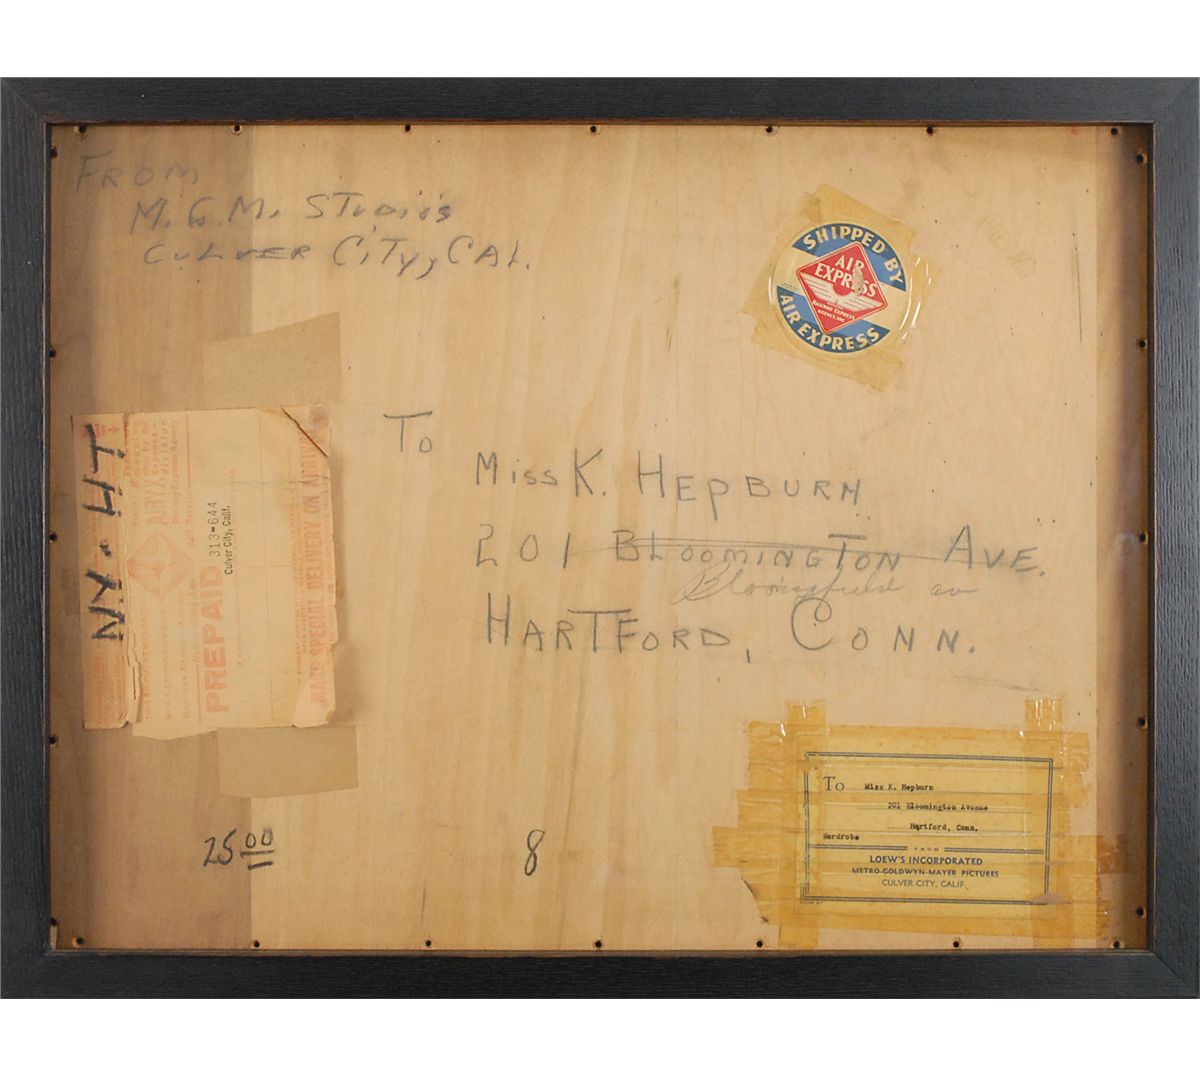 FROM
M.G.M. STUDIIS
CULVER CITY, CAL.
SHIPPED BY
AIR
EXPRESS
RAILWAY EXPRESS
AGENCY, INC.
AIR EXPRESS
TO
MISS K. HEPBURN
201 BLOOMINGTON AVE.
Bloomfield av
HARTFORD, CONN.
NY. HT
AIR EXPRESS
division
Railway Express Agency
PREPAID
313-644
Culver City, Calif.
MAKE SPECIAL DELIVERY ON ARRIVAL
25 00
8
To Miss K. Hepburn
201 Bloomington Avenue
Hartford, Conn.
Wardrobe
FROM
LOEW'S INCORPORATED
METRO-GOLDWYN-MAYER PICTURES
CULVER CITY, CALIF.